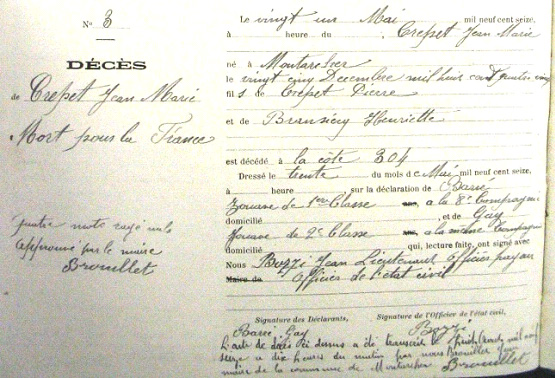 N° 3
DÉCÈS
de Crepet Jean Marie
Mort pour la France
quatre mots rayé nuls
Approuvé par le maire
Brouillet
Le vingt un Mai mil neuf cent seize,
à heure du , Crepet Jean Marie
né à Montarcher
le vingt cinq Decembre mil huit cent quatre cinq
fils de Crépet Pierre
et de Henriette
est décédé à la côte 304
Dressé le trente du mois de Mai mil neuf cent seize,
à heure sur la déclaration de Barié
Zouave de 1ere Classe a la 8e Compagnie
domicilié , et de Gay
Zouave de 2e Classe a la même Compagnie
domicilié qui, lecture faite, ont signé avec
Nous Bozzi Jean Lieutenant Officier payeur
Maire de Officier de l'état civil
Signature des Déclarants, Signature de l'Officier de l'état civil,
Barié Gay Bozzi
L'acte de décès ci dessus a été transcrit le mil neuf
seize a dix heures du matin par nous Brouillet Jean
maire de la commune de Montarcher Brouillet